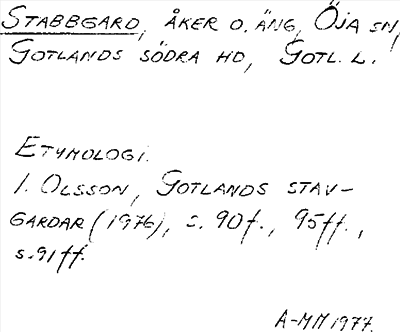 STABBGARD, ÅKER O. ÄNG, ÖJA SN,
GOTLANDS SÖDRA HD, GOTL. L.
ETYMOLOGI.
I. OLSSON, GOTLANDS STAV-
GARDAR (1976), s. 90f., 95ff.,
s. 91ff.
A-MM 1977.